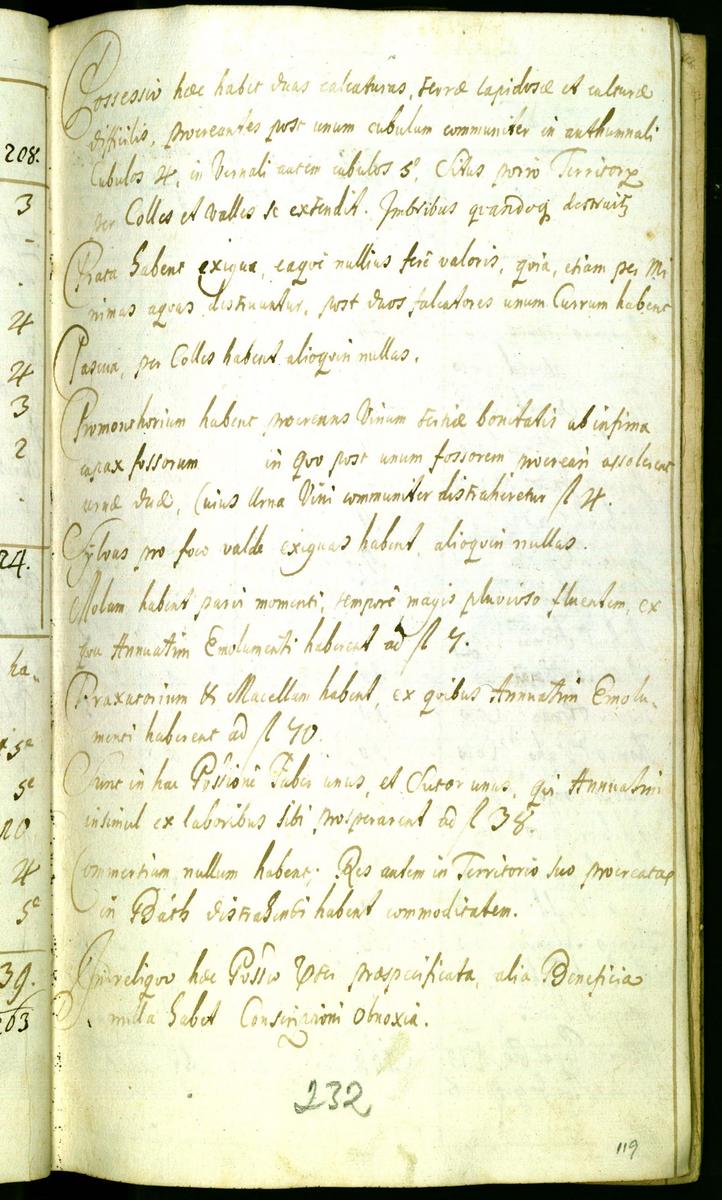 208.
3
-
4
4
3
2
24.
ha-
5e
5e
20
4
5e
39.
203
Possessio hæc habet duas calcaturas, terræ lapidosæ et culturæ
difficilis, procreantes post unum cubulum communiter in authumnali
Cubulos 4, in Vernali autem cubulos 5e, Situs porro Territory
per Colles et Valles se extendit. Imbribus quandoq destruit
Prata habent exigua, eaque nullius fere valoris, quia, etiam per Mi
nimas aquas distruantur, post duos falcatores unum Currum habent
Pascua, per Colles habent, alioquin nullas.
Promonthorium habent procreans Vinum tertiæ bonitatis ab infima
capax fossorum in quo post unum fossorem procreari assolerent
urnæ duæ, Cuius Urna Vini communiter distraheretur fl 4.
Sylvas pro foco valde exiguas habent, alioquin nullas.
Molam habent parvi momenti, tempore magis pluvioso fluentem, ex
qua Annuatim Emolumenti haberent ad fl 7.
Braxatorium & Macellum habent, ex quibus Annuatim Emolu-
menti haberent ad fl 70.
Sunt in hac Possione Faber unus, et Sutor unus, qui Annuatim
insimul ex laboribus sibi prosperarent ad fl 38.
Commertium nullum habent; Res autem in Territorio suo procreatas
in Báth distrahendi habent commoditatem.
In reliquo hæc Possio præspecificata, alia Beneficia
nulla habet Conscriptioni Obnoxia.
232
119